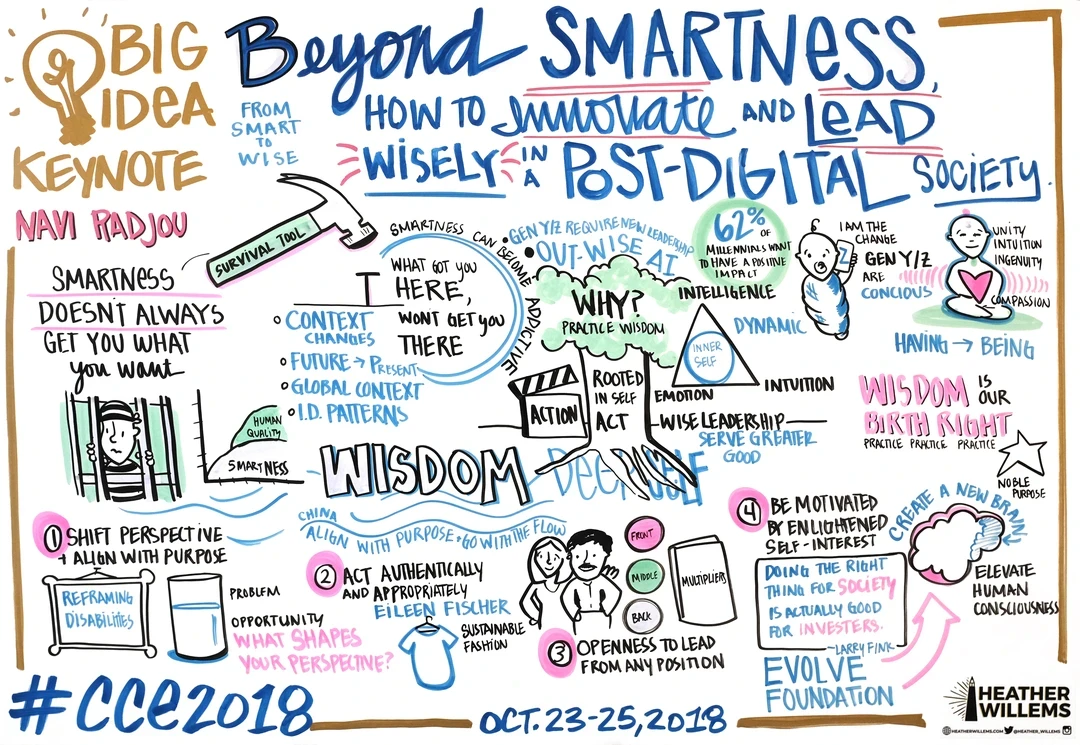 BIG
IDEA
KEYNOTE
NAVI RADJOU
FROM
SMART
TO
WISE
Beyond SMARTNESS,
HOW TO Innovate AND LEAD
WISELY IN A POST-DIGITAL SOCIETY.
SURVIVAL TOOL
SMARTNESS
DOESN'T ALWAYS
GET YOU WHAT
you want
HUMAN
QUALITY
SMARTNESS
SMARTNESS CAN BECOME ADDICTIVE
WHAT GOT YOU
HERE,
WONT GET YOU
THERE
CONTEXT
CHANGES
FUTURE → PRESENT
GLOBAL CONTEXT
I.D. PATTERNS
GEN Y/Z REQUIRE NEW LEADERSHIP
OUT-WISE AI
WHY?
PRACTICE WISDOM
ROOTED
IN SELF
ACT
ACTION
62%
OF
MILLENNIALS WANT
TO HAVE A POSITIVE
IMPACT
INTELLIGENCE
DYNAMIC
INNER
SELF
EMOTION
INTUITION
WISE LEADERSHIP
SERVE GREATER
GOOD
I AM THE
CHANGE
GEN Y/Z
ARE
CONCIOUS
UNITY
INTUITION
INGENUITY
COMPASSION
HAVING → BEING
WISDOM IS
OUR
BIRTH RIGHT
PRACTICE PRACTICE PRACTICE
NOBLE
PURPOSE
WISDOM
DEEP SELF
CHINA
ALIGN WITH PURPOSE + GO WITH THE FLOW
1 SHIFT PERSPECTIVE
+ ALIGN WITH PURPOSE
REFRAMING
DISABILITIES
PROBLEM
OPPORTUNITY
WHAT SHAPES
YOUR PERSPECTIVE?
2 ACT AUTHENTICALLY
AND APPROPRIATELY
EILEEN FISCHER
SUSTAINABLE
FASHION
FRONT
MIDDLE
BACK
MULTIPLIERS
3 OPENNESS TO LEAD
FROM ANY POSITION
4 BE MOTIVATED
BY ENLIGHTENED
SELF-INTEREST
DOING THE RIGHT
THING FOR SOCIETY
IS ACTUALLY GOOD
FOR INVESTERS.
~LARRY FINK
EVOLVE
FOUNDATION
CREATE A NEW BRAIN
ELEVATE
HUMAN
CONSCIOUSNESS
#CCE2018
OCT. 23-25, 2018
HEATHER
WILLEMS
HEATHERWILLEMS.COM @HEATHER_WILLEMS